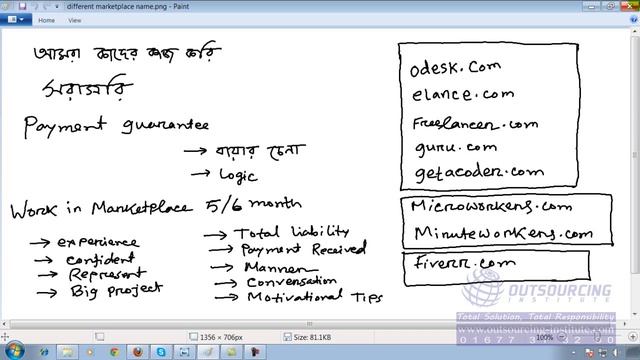 different marketplace name.png - Paint
Home
View
আমরা কাদের কাজ করি
সরাসরি
Payment guarantee
→ বায়ার চেনা
→ Logic
Work in Marketplace 5/6 month
→ experience
→ confident
→ Represent
→ Big project
→ Total liability
→ Payment Received
→ Manner
→ Conversation
→ Motivational Tips
odesk.com
elance.com
Freelancer.com
guru.com
getacoder.com
Microworkers.com
Minuteworkers.com
fiverr.com
OUTSOURCING
INSTITUTE
Total Solution, Total Responsibility
www.outsourcing-institute.com
1356 × 706px
Size: 81.1KB
100%